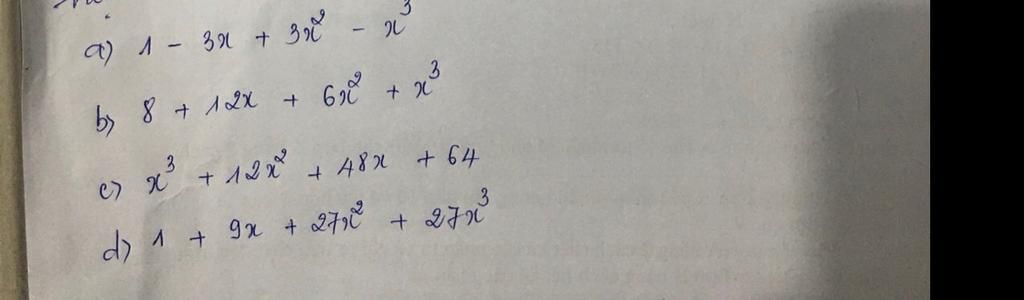 a) 1 - 3x + 3x² - x³
b) 8 + 12x + 6x² + x³
c) x³ + 12x² + 48x + 64
d) 1 + 9x + 27x² + 27x³